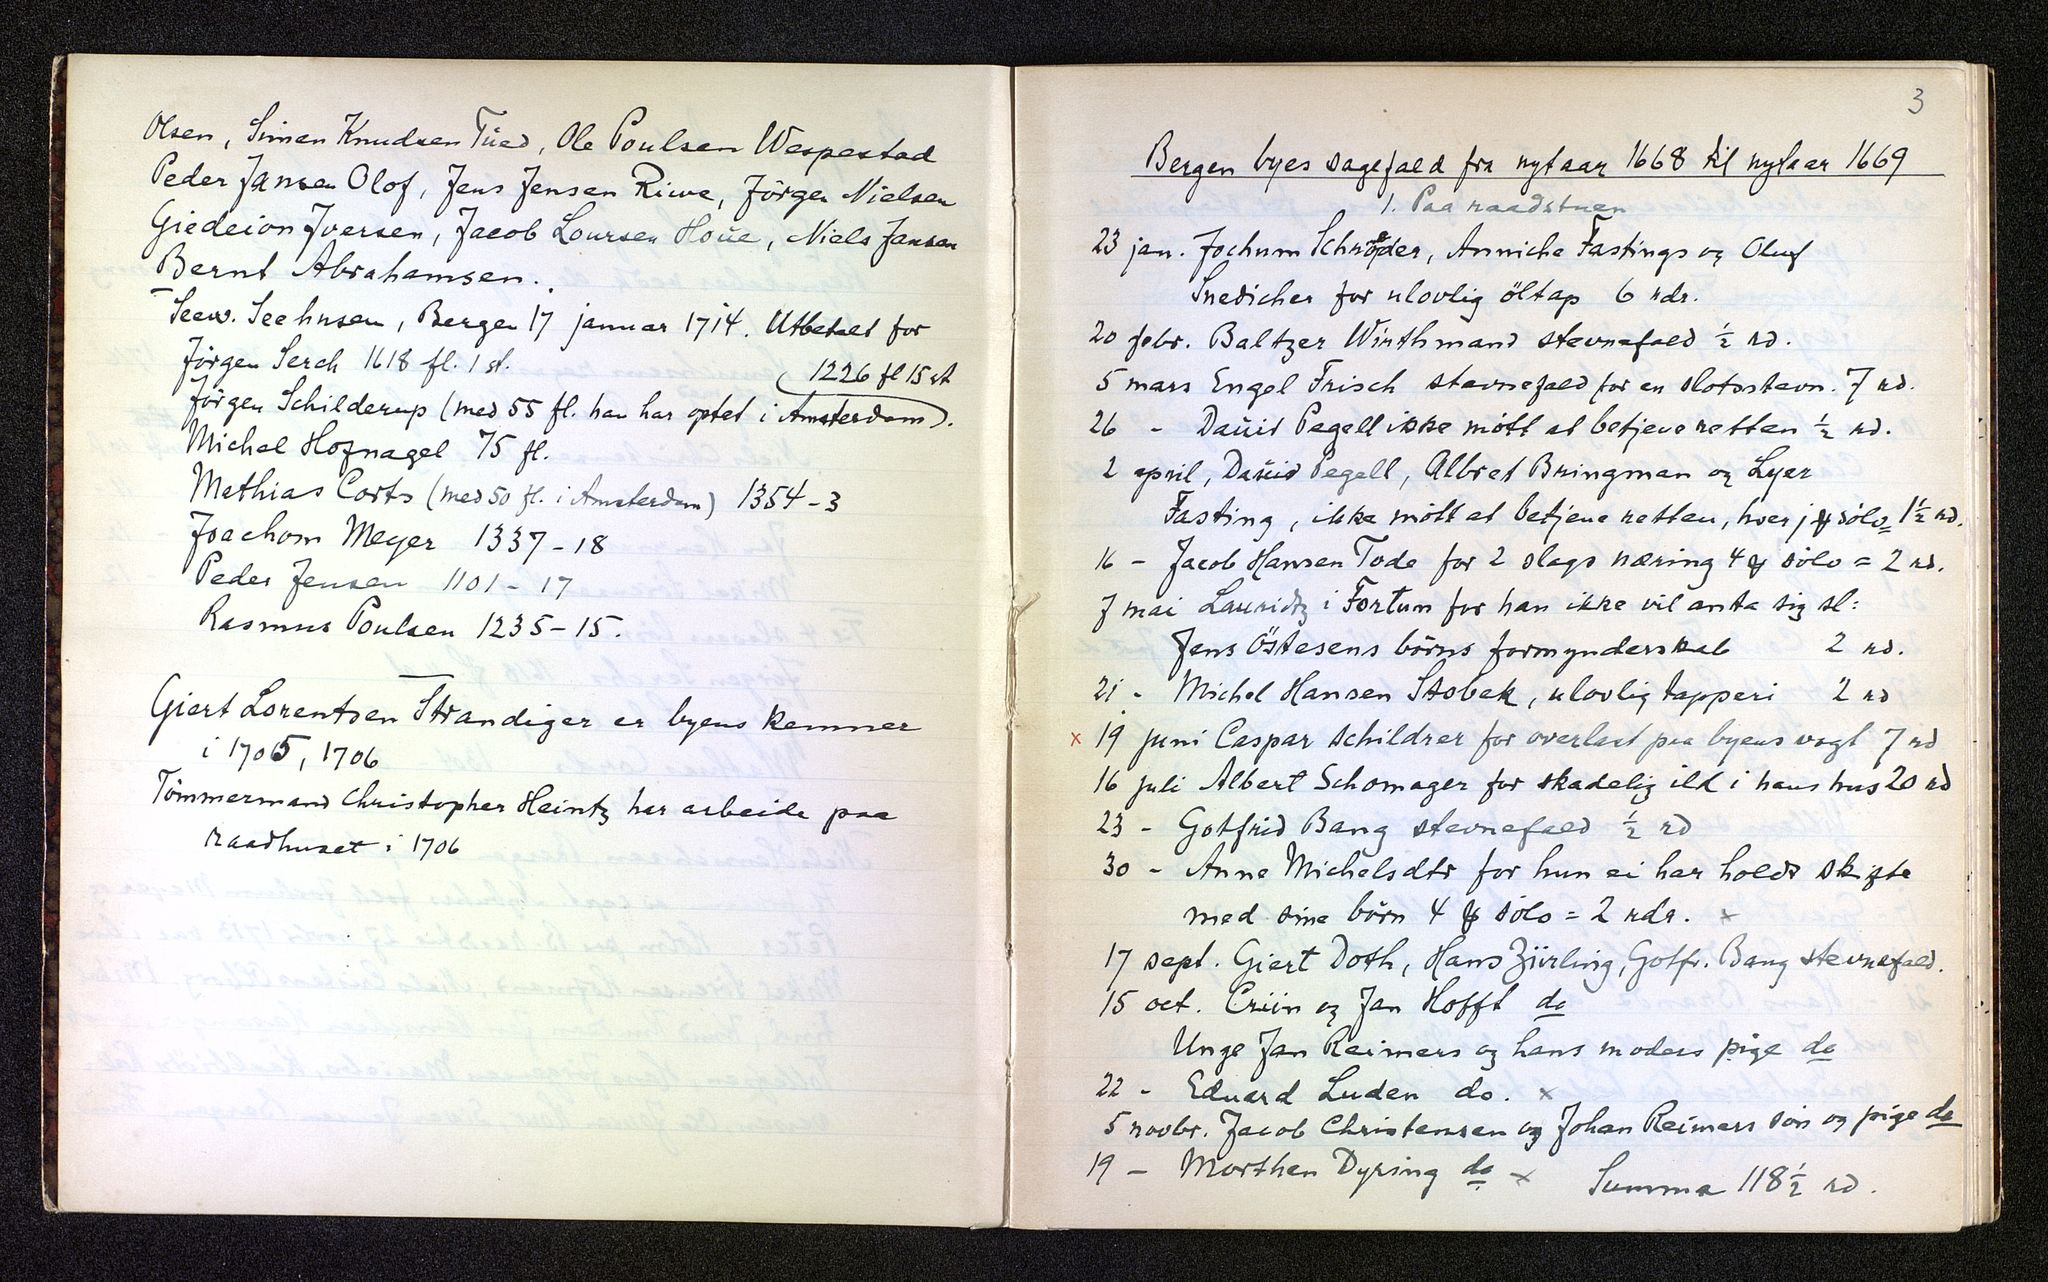 Olsen, Simen Knudsen Tüed, Ole Poulsen Wespestad
Peder Jansen Olof, Jens Jensen Riwe, Jörgen Nielsen
Giedeion Jversen, Jacob Loursen Hoüe, Niels Jansen
Bernt Abrahamsen.
Seew. Seehusen, Bergen 17 januar 1714. Utbetalt for
Jörgen Serch 1618 fl. 1 st.
(1226 fl 15 st
Jörgen Schilderup (med 55 fl. han har optet i Amsterdam).
Michel Hofnagel 75 fl.
Mathias Corts (med 50 fl. i Amsterdam) 1354-3
Joachom Meyer 1337-18
Peder Jensen 1101-17
Rasmus Poulsen 1235-15.
Giert Lorentsen Strandiger er byens kemner
i 1705, 1706
Tömmermand Christopher Heintz har arbeide paa
raadhuset i 1706
3
Bergen byes sagefald fra nytaar 1668 til nytaar 1669
1. Paa raadstuen
23 jan. Jochum Schröder, Anniche Fastings og Oluf
Snedicher for ulovlig öltap 6 rdr.
20 febr. Baltzer Wirthmand stevnefald ½ rd.
5 mars Engel Frisch stevnefald for en slotsstevn. 7 rd.
26 - Daüid Pegell ikke mött at betjene retten ½ rd.
2 april, Daüid Pegell, Albret Bringman og Lyer
Fasting, ikke mött at betjene retten, hver sölv 1½ rd.
16 - Jacob Hansen Tode for 2 slags næring 4 sölv = 2 rd.
7 mai Lauridtz i Fortun for han ikke vil anta sig sl:
Jens Östesens börns formynderskab 2 rd.
21 - Michel Hansen Stobek, ulovlig tapperi 2 rd
x 19 juni Caspar schildrer for overlast paa byens vogt 7 rd
16 juli Albert Schomager for skadelig ild i hans hus 20 rd
23 - Gotfrid Bang stevnefald ½ rd
30 - Anne Michelsdtr for hun ei har holdt skifte
med sine börn 4 sölv = 2 rdr. x
17 sept. Giert Doth, Hans Zürling, Gotfr. Bang stevnefald.
15 oct. Criin og Jan Hofft do
Unge Jan Reimers og hans moders pige do
22 - Eduard Luden do. x
5 novbr. Jacob Christensen og Johan Reimers sön og pige do
19 - Morthen Dyring do x Summa 118½ rd.